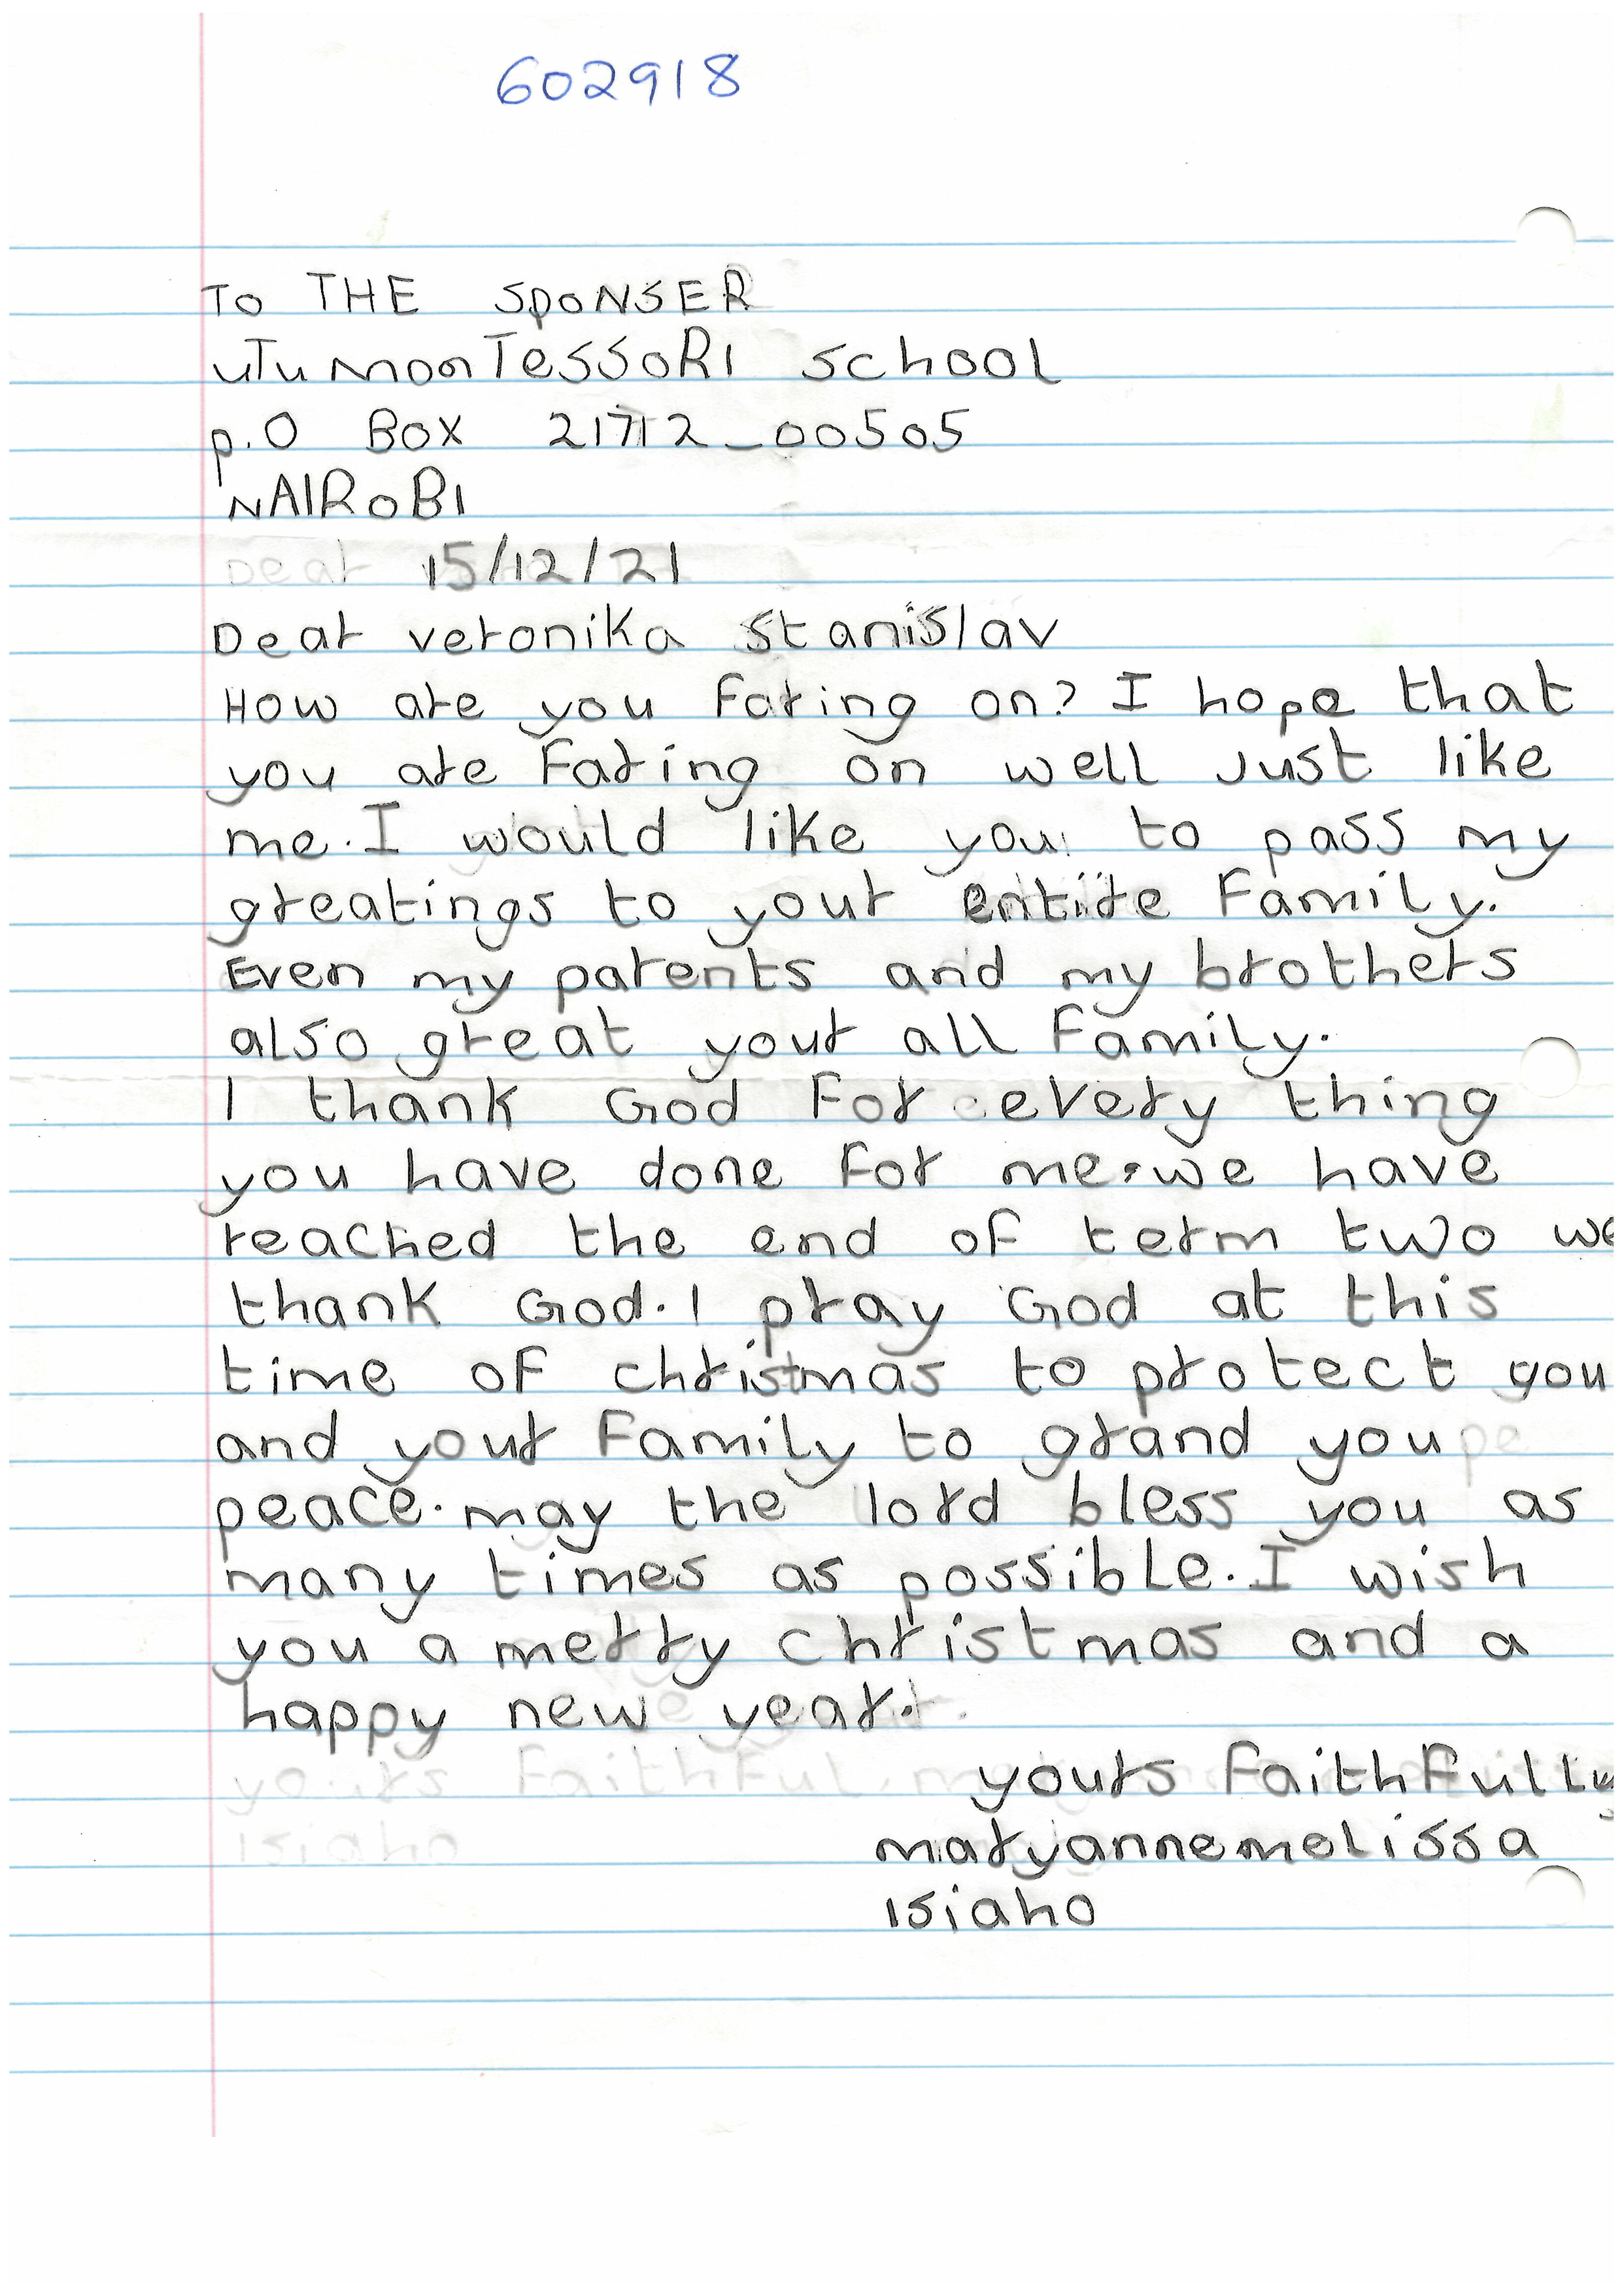 602918
TO THE SPONSER
uTu MonTeSSoRI School
p.O BOX 21712_00505
NAIROBI
Dear 15/12/21
Dear veronika Stanislav
How are you faring on? I hope that
you are faring on well Just like
me. I would like you to pass my
greatings to your entire Family.
Even my parents and my brothers
also great your all Family.
I thank God For every thing
you have done for me. we have
reached the end of term two we
thank God. I pray God at this
time of christmas to protect you
and your Family to grand you pe
peace. may the lord bless you as
many times as possible. I wish
you a merry christmas and a
happy new year.
yours FaithFul
yours FaithFully
Isiaho
maryannemelissa
Isiaho